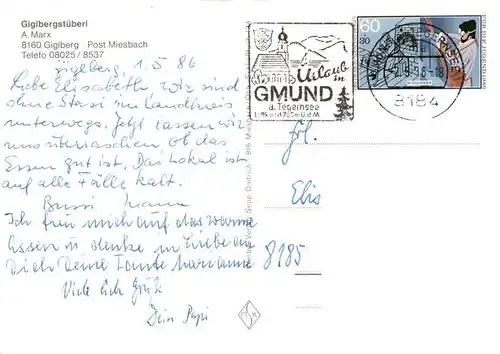 Giglbergstüberl
A. Marx
8160 Giglberg Post Miesbach
Telefo 08025 / 8537
Giglberg, 1.5.86
Liebe Elisabeth, wir sind
ohne Stasi im Landkreis
unterwegs. Jetzt lassen wir
uns überraschen, ob das
Essen gut ist. Das Lokal ist
auf alle Fälle kalt.
Bussi Mama
Ich freu mich auf das warme
Essen u. denke in Liebe an
Dich Deine Tante Marianne
Viele lieb Grüße
Dein Papi
Urlaub
in
GMUND
a. Tegernsee
60
30
8184
Frl.
Elis
8185
Verlag Sepp Dietrich, 816 Miesbach